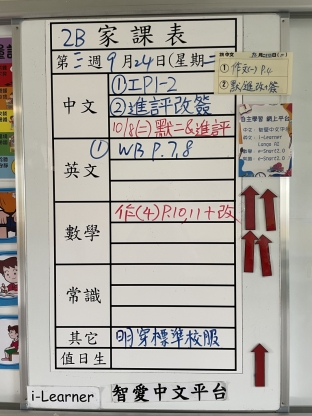 2B 家課表
第三週9月24日(星期二
中文
①工P1-2
②進評改簽
10/8(三)默二&進評
英文
① WB P.7,8
數學
作(4)P.10,11+改
常識
其它
明穿標準校服
值日生
① 作文(一) P.4
② 默/進改簽
自主學習 網上平台
i-Learner
智愛中文平台